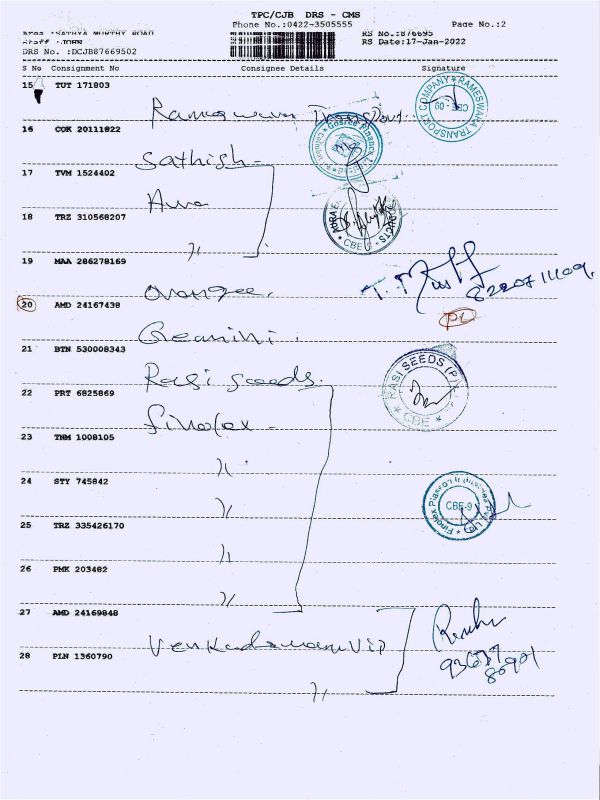 TPC/CJB DRS - CMS
Phone No.:0422-3505555 Page No.:2
Area :SATHYA MURTHY ROAD RS No.:876695
Staff :JOHN RS Date:17-Jan-2022
DRS No. :DCJB87669502
S No Consignment No Consignee Details Signature
15 TUT 171803
Rameswara Transport
RAMESWARA TRANSPORT COMPANY CBE - 09
16 COK 20111822
Sathish
17 TVM 1524402
18 TRZ 310568207
CBE
19 MAA 286278169
Orangee.
20 AMD 24167438
Greamini.
21 BTN 530008343
Rasi seeds.
RASI SEEDS (P) CBE
22 PRT 6825869
finolex -
23 TNM 1008105
24 STY 745842
Finolex Plasson Industries Pvt Ltd CBE-9
25 TRZ 335426170
26 PMK 203482
27 AMD 24169848
28 PLN 1360790